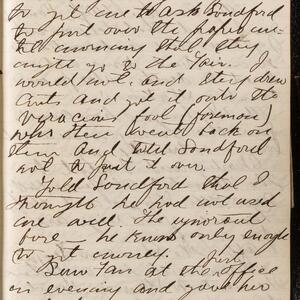 to get me to ask Sandford
to put over the paper un-
til morning that they
might go to the Fair. I
would not. and they drew
cuts and got it onto the
voracious fool (foreman)
over there went back on
them and told Sandford
not to put it over.
Told Sandford that I
thought he had not used
me well. The ignorant
he knows only enough
to get money.
Saw Fan at the office
in evening and gave her